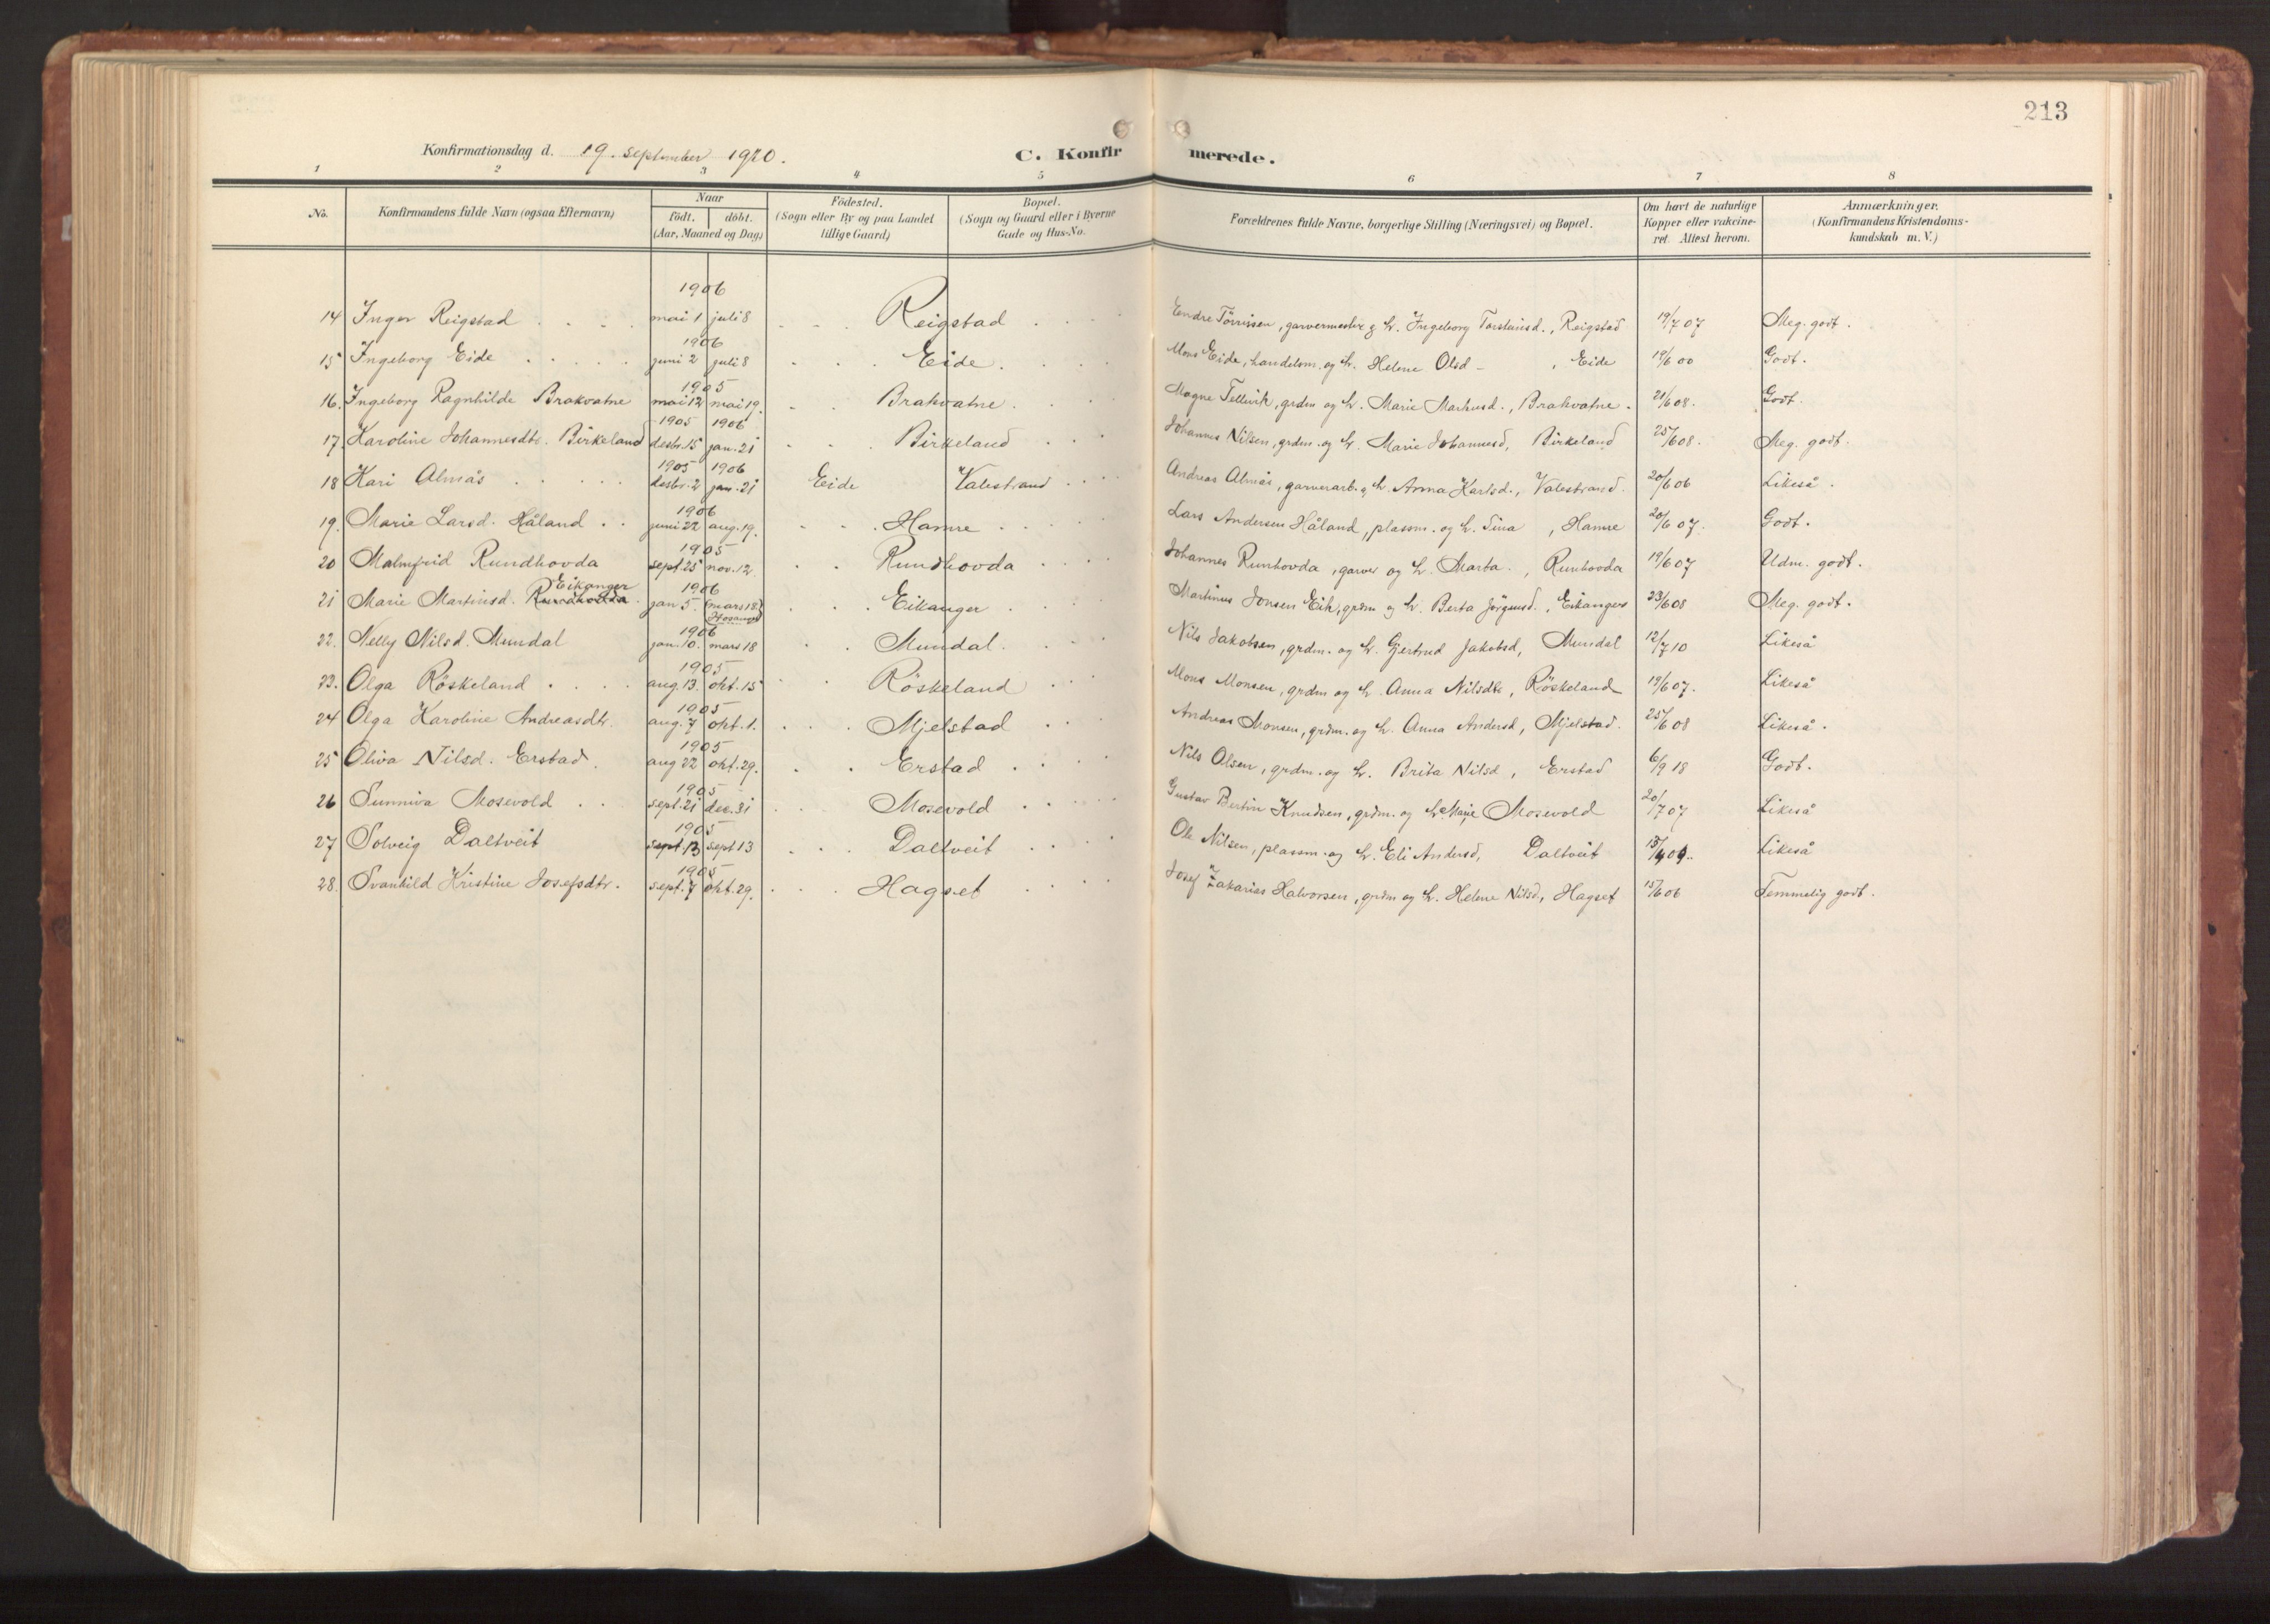 213
Konfirmationsdag d. 19. september 1920.
C. Konfirmerede.
1 2 3 4 5 6 7 8
No. Konfirmandens fulde Navn (ogsaa Efternavn) Naar födt. döbt. (Aar, Maaned og Dag) Födested. (Sogn eller By og paa Landet tillige Gaard) Bopæl. (Sogn og Gaard eller i Byerne Gade og Hus-No. Forældrenes fulde Navne, borgerlige Stilling (Næringsvei) og Bopæl. Om havt de naturlige Kopper eller vakcineret Attest herom. Anmærkninger. (Konfirmandens Kristendomskundskab m. V.)
1906
14 Inger Reigstad . . . . mai 1 juli 8 . . . Reigstad . . . . Endre Törrissen, garvermester & h. Ingeborg Torsteinsd., Reigstad 19/7 07 Meg. godt.
1906
15 Ingeborg Eide . . . . . juni 2 juli 8 . . . Eide. . . . Mons Eide, handelsm. og h. Helene Olsd - , Eide 19/6 00 Godt.
1905
16. Ingeborg Ragnhilde Brakvatne mai 12 mai 19. . . Brakvatne . . . Magne Tellevik, grdm og h. Marie Markusd., Brakvatne. 21/6 08. Godt.
1905 1906
17. Karoline Johannesdtr. Birkeland desbr. 15 jan. 21 . . Birkeland . . . Johannes Nilsen, grdm. og h. Marie Johannesd, Birkeland 25/6 08. Meg. godt.
1905 1906
18 Kari Almås . . . . . desbr. 2 jan. 21 Eide Valestrand . . . . Andreas Almås, garverarb. & h. Anna Karlsd., Valestrand. 20/6 06 Likeså.
1906
19. Marie Larsd. Håland . . juni 22 aug. 19. . . . Hamre . . . . . Lars Andersen Håland, plassm. og h. Sina , Hamre 20/6 07. Godt.
1905
20 Malmfrid Rundhovda sept. 25 nov. 12. . . Rundhovda . . . Johannes Runhovda, garver og h. Marta. , Runhovda 19/6 07 Udm. godt.
Eikanger 1906
21 Marie Martinsd. Rundhovda. jan 5. (mars 18.) Hosanger . . . Eikanger . . . . Martinus Jonsen Eik, grdm og h. Berta Jörgensd., Eikanger 23/6 08 Meg. godt.
1906
22. Nelly Nilsd. Mundal jan. 10. mars 18 . . Mundal. . . . Nils Jakobsen, grdm. og h. Gjertrud Jakobsd, Mundal 12/7 10 Likeså
1905
23. Olga Röskeland . . . . aug. 13. okt. 15 . . Röskeland . . . Mons Monsen, grdm og h. Anna Nilsdtr, Röskeland 19/6 07. Likeså
1905
24 Olga Karoline Andreasdtr. aug. 7 okt. 1. . . . Mjelstad . . . Andreas Monsen, grdm. og h. Anna Andersd, Mjelstad. 25/6 08 Likeså.
1905
25 Oliva Nilsd. Erstad. aug 22 okt. 29. . . Erstad . . . . Nils Olsen, grdm. og h. Brita Nilsd, Erstad 6/9 18 Godt.
1905
26 Sunniva Mosevold . . sept. 21 dec. 31 . . Mosevold . . . . . Gustav Bertin Knudsen, grdm. og h. Marie Mosevold 20/7 07 Likeså
1905
27 Solveig Daltveit sept. 13 sept 13 . . . Daltveit . . . . Ole Nilsen, plassm. og h. Eli Andersd, Daltveit Likeså
1905
28. Svanhild Kristine Josefsdtr. sept. 7 okt. 29. . . . Hagset . . . . Josef Zakarias Halvorsen, grdm og h. Helene Nilsd, Hagset 15/6 06 Temmelig godt.